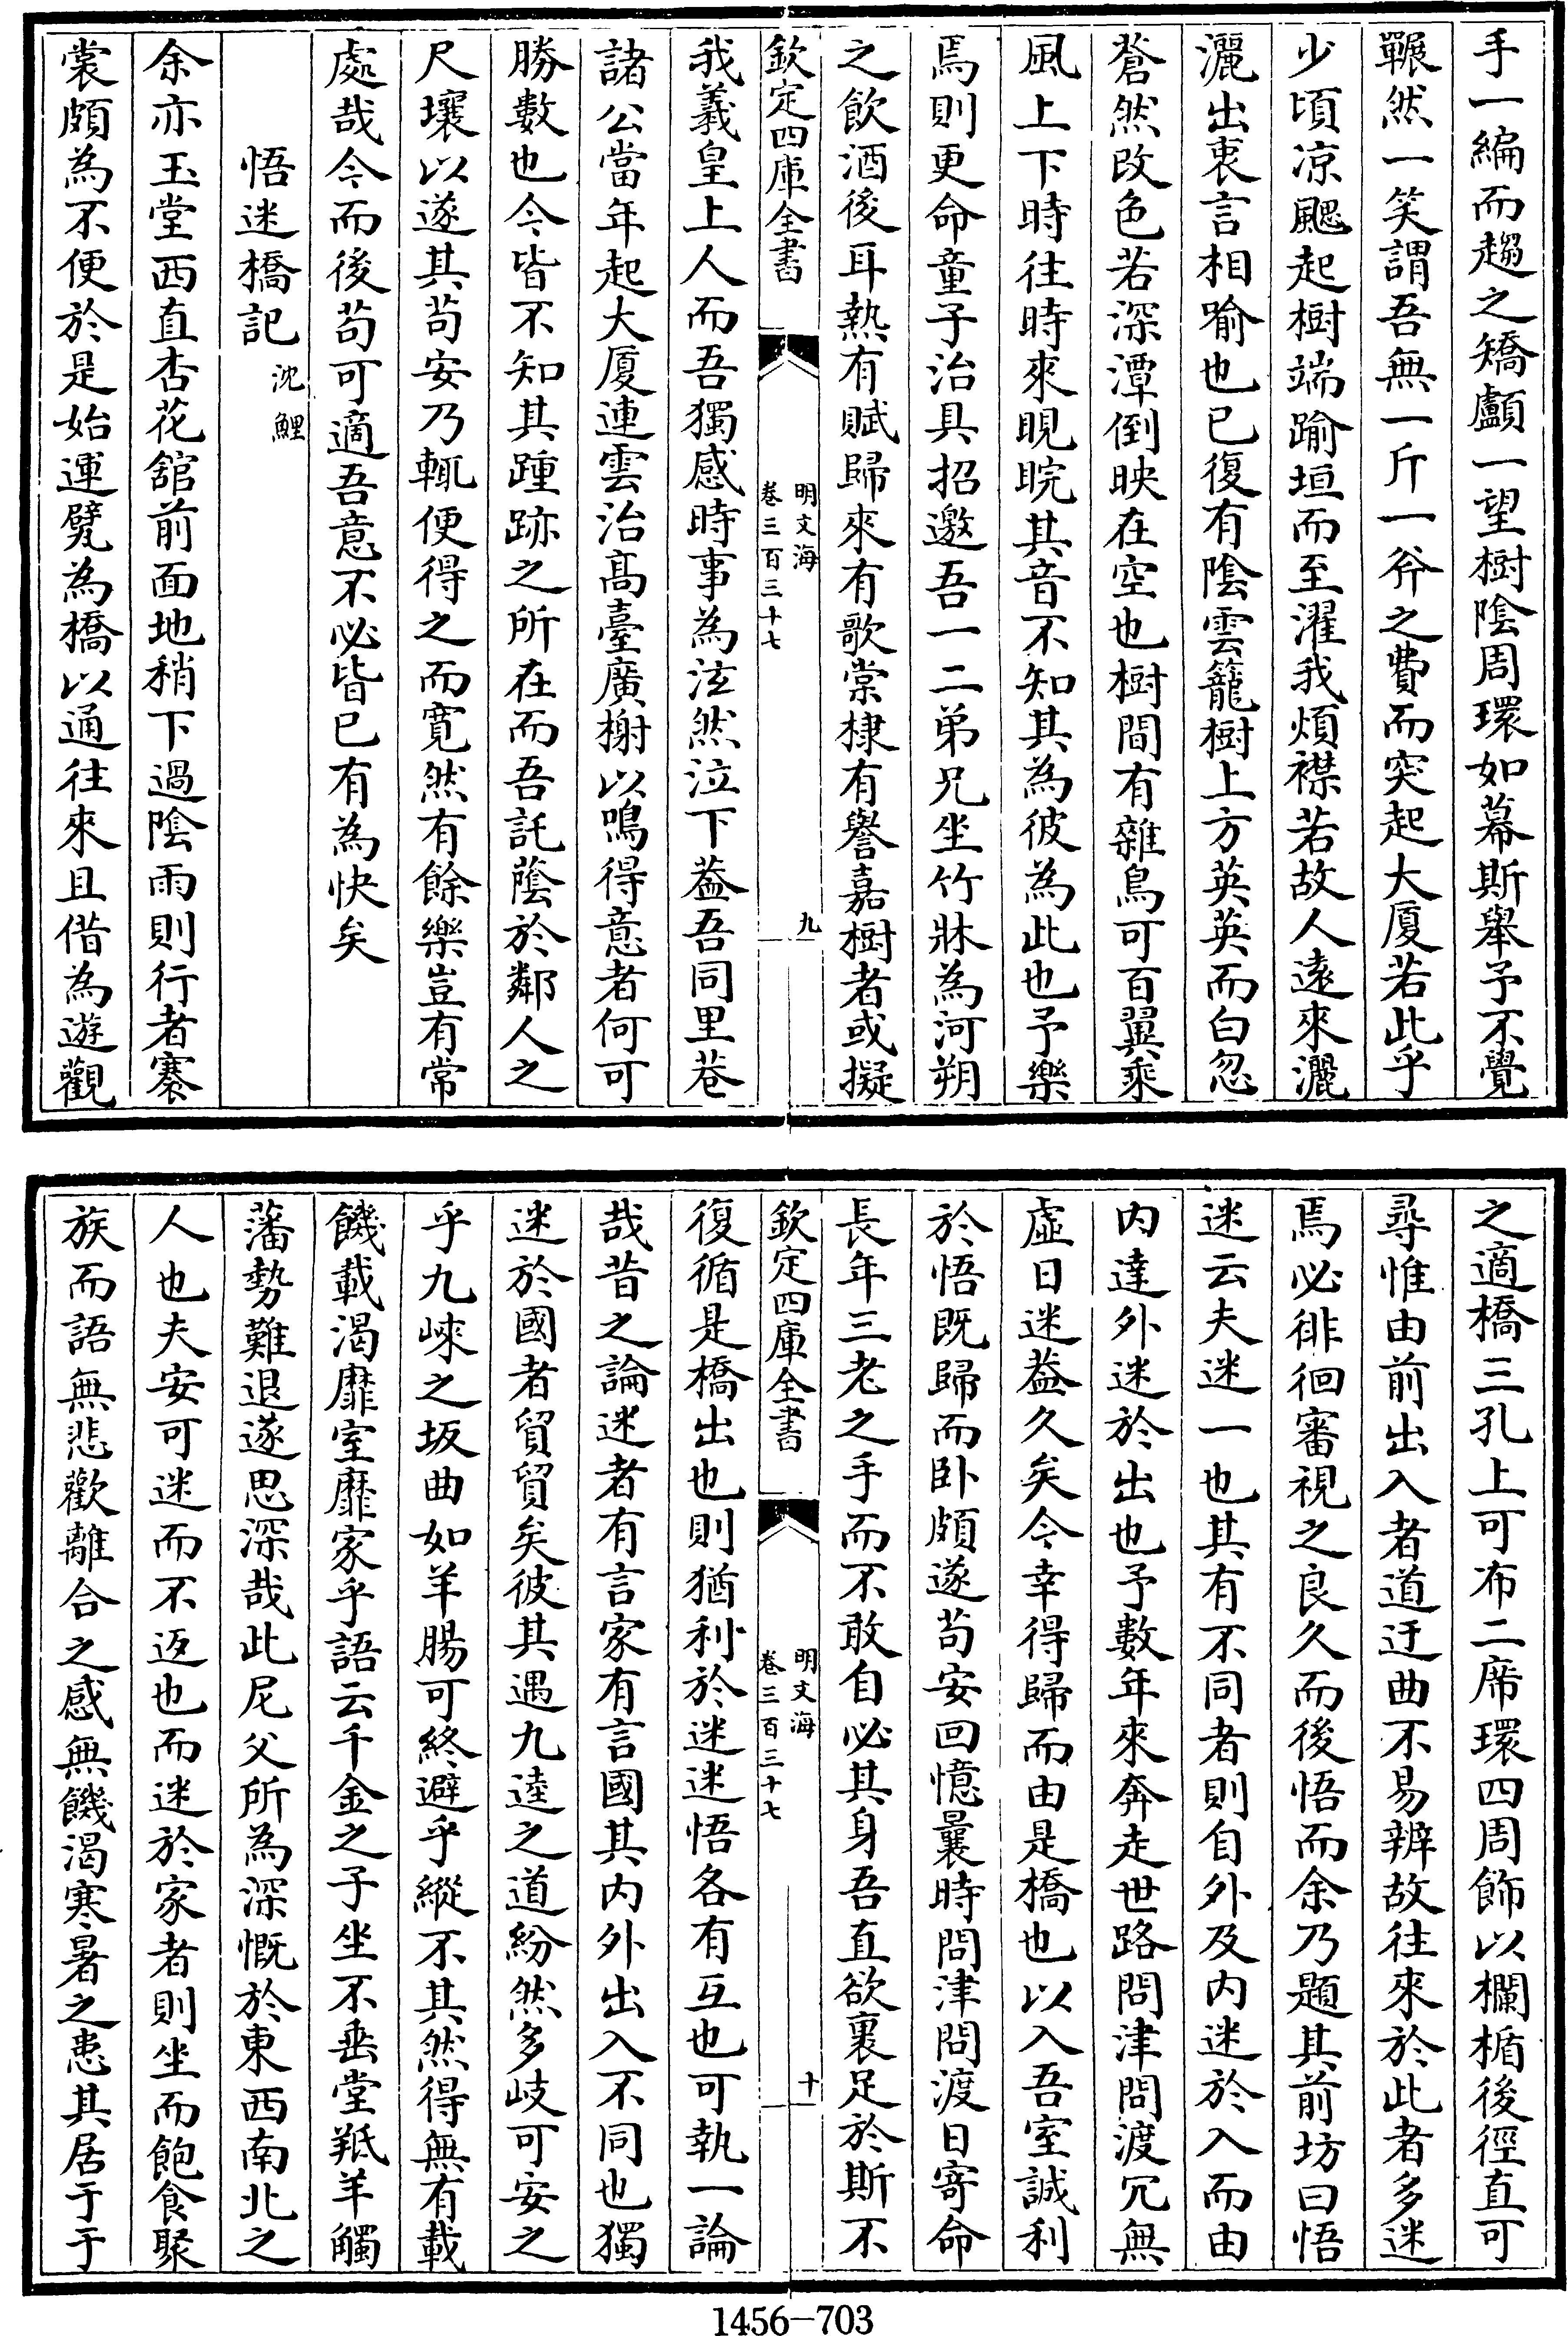 手一編而趨之矯顱一望樹陰周環如幕斯舉予不覺
囅然一笑謂吾無一斤一斧之費而突起大厦若此乎
少頃凉颸起樹端踰垣而至濯我煩襟若故人遠來灑
灑出衷言相喻也已復有陰雲籠樹上方英英而白忽
蒼然改色若深潭倒映在空也樹間有雜鳥可百翼乘
風上下時往時來睍睆其音不知其為彼為此也予樂
焉則更命童子治具招邀吾一二弟兄坐竹牀為河朔
之飲酒後耳熱有賦歸來有歌棠棣有譽嘉樹者或擬
欽定四庫全書
明文海
卷三百三十七
九
我羲皇上人而吾獨感時事為泫然泣下葢吾同里巷
諸公當年起大厦連雲治高臺廣榭以鳴得意者何可
勝數也今皆不知其踵跡之所在而吾託蔭於鄰人之
尺壤以遂其苟安乃輒便得之而寬然有餘樂豈有常
處哉今而後苟可適吾意不必皆已有為快矣
悟迷橋記 沈鯉
余亦玉堂西直杏花舘前面地稍下過陰雨則行者褰
裳頗為不便於是始運甓為橋以通往來且借為遊觀
之適橋三孔上可布二席環四周飾以欄楯後徑直可
尋惟由前出入者道迂曲不易辨故往來於此者多迷
焉必徘徊審視之良久而後悟而余乃題其前坊曰悟
迷云夫迷一也其有不同者則自外及内迷於入而由
内達外迷於出也予數年來奔走世路問津問渡冗無
虛日迷益久矣今幸得歸而由是橋也以入吾室誠利
於悟既歸而卧頗遂苟安回憶曩時問津問渡日寄命
長年三老之手而不敢自必其身吾直欲裹足於斯不
欽定四庫全書
明文海
卷三百三十七
十
復循是橋出也則猶利於迷迷悟各有互也可執一論
哉昔之論迷者有言家有言國其内外出入不同也獨
迷於國者貿貿矣彼其遇九逵之道紛然多岐可安之
乎九崍之坂曲如羊腸可終避乎縱不其然得無有載
饑載渴靡室靡家乎語云千金之子坐不垂堂羝羊觸
藩勢難退遂思深哉此尼父所為深慨於東西南北之
人也夫安可迷而不返也而迷於家者則坐而飽食聚
族而語無悲歡離合之感無饑渴寒暑之患其居于于
1456-703